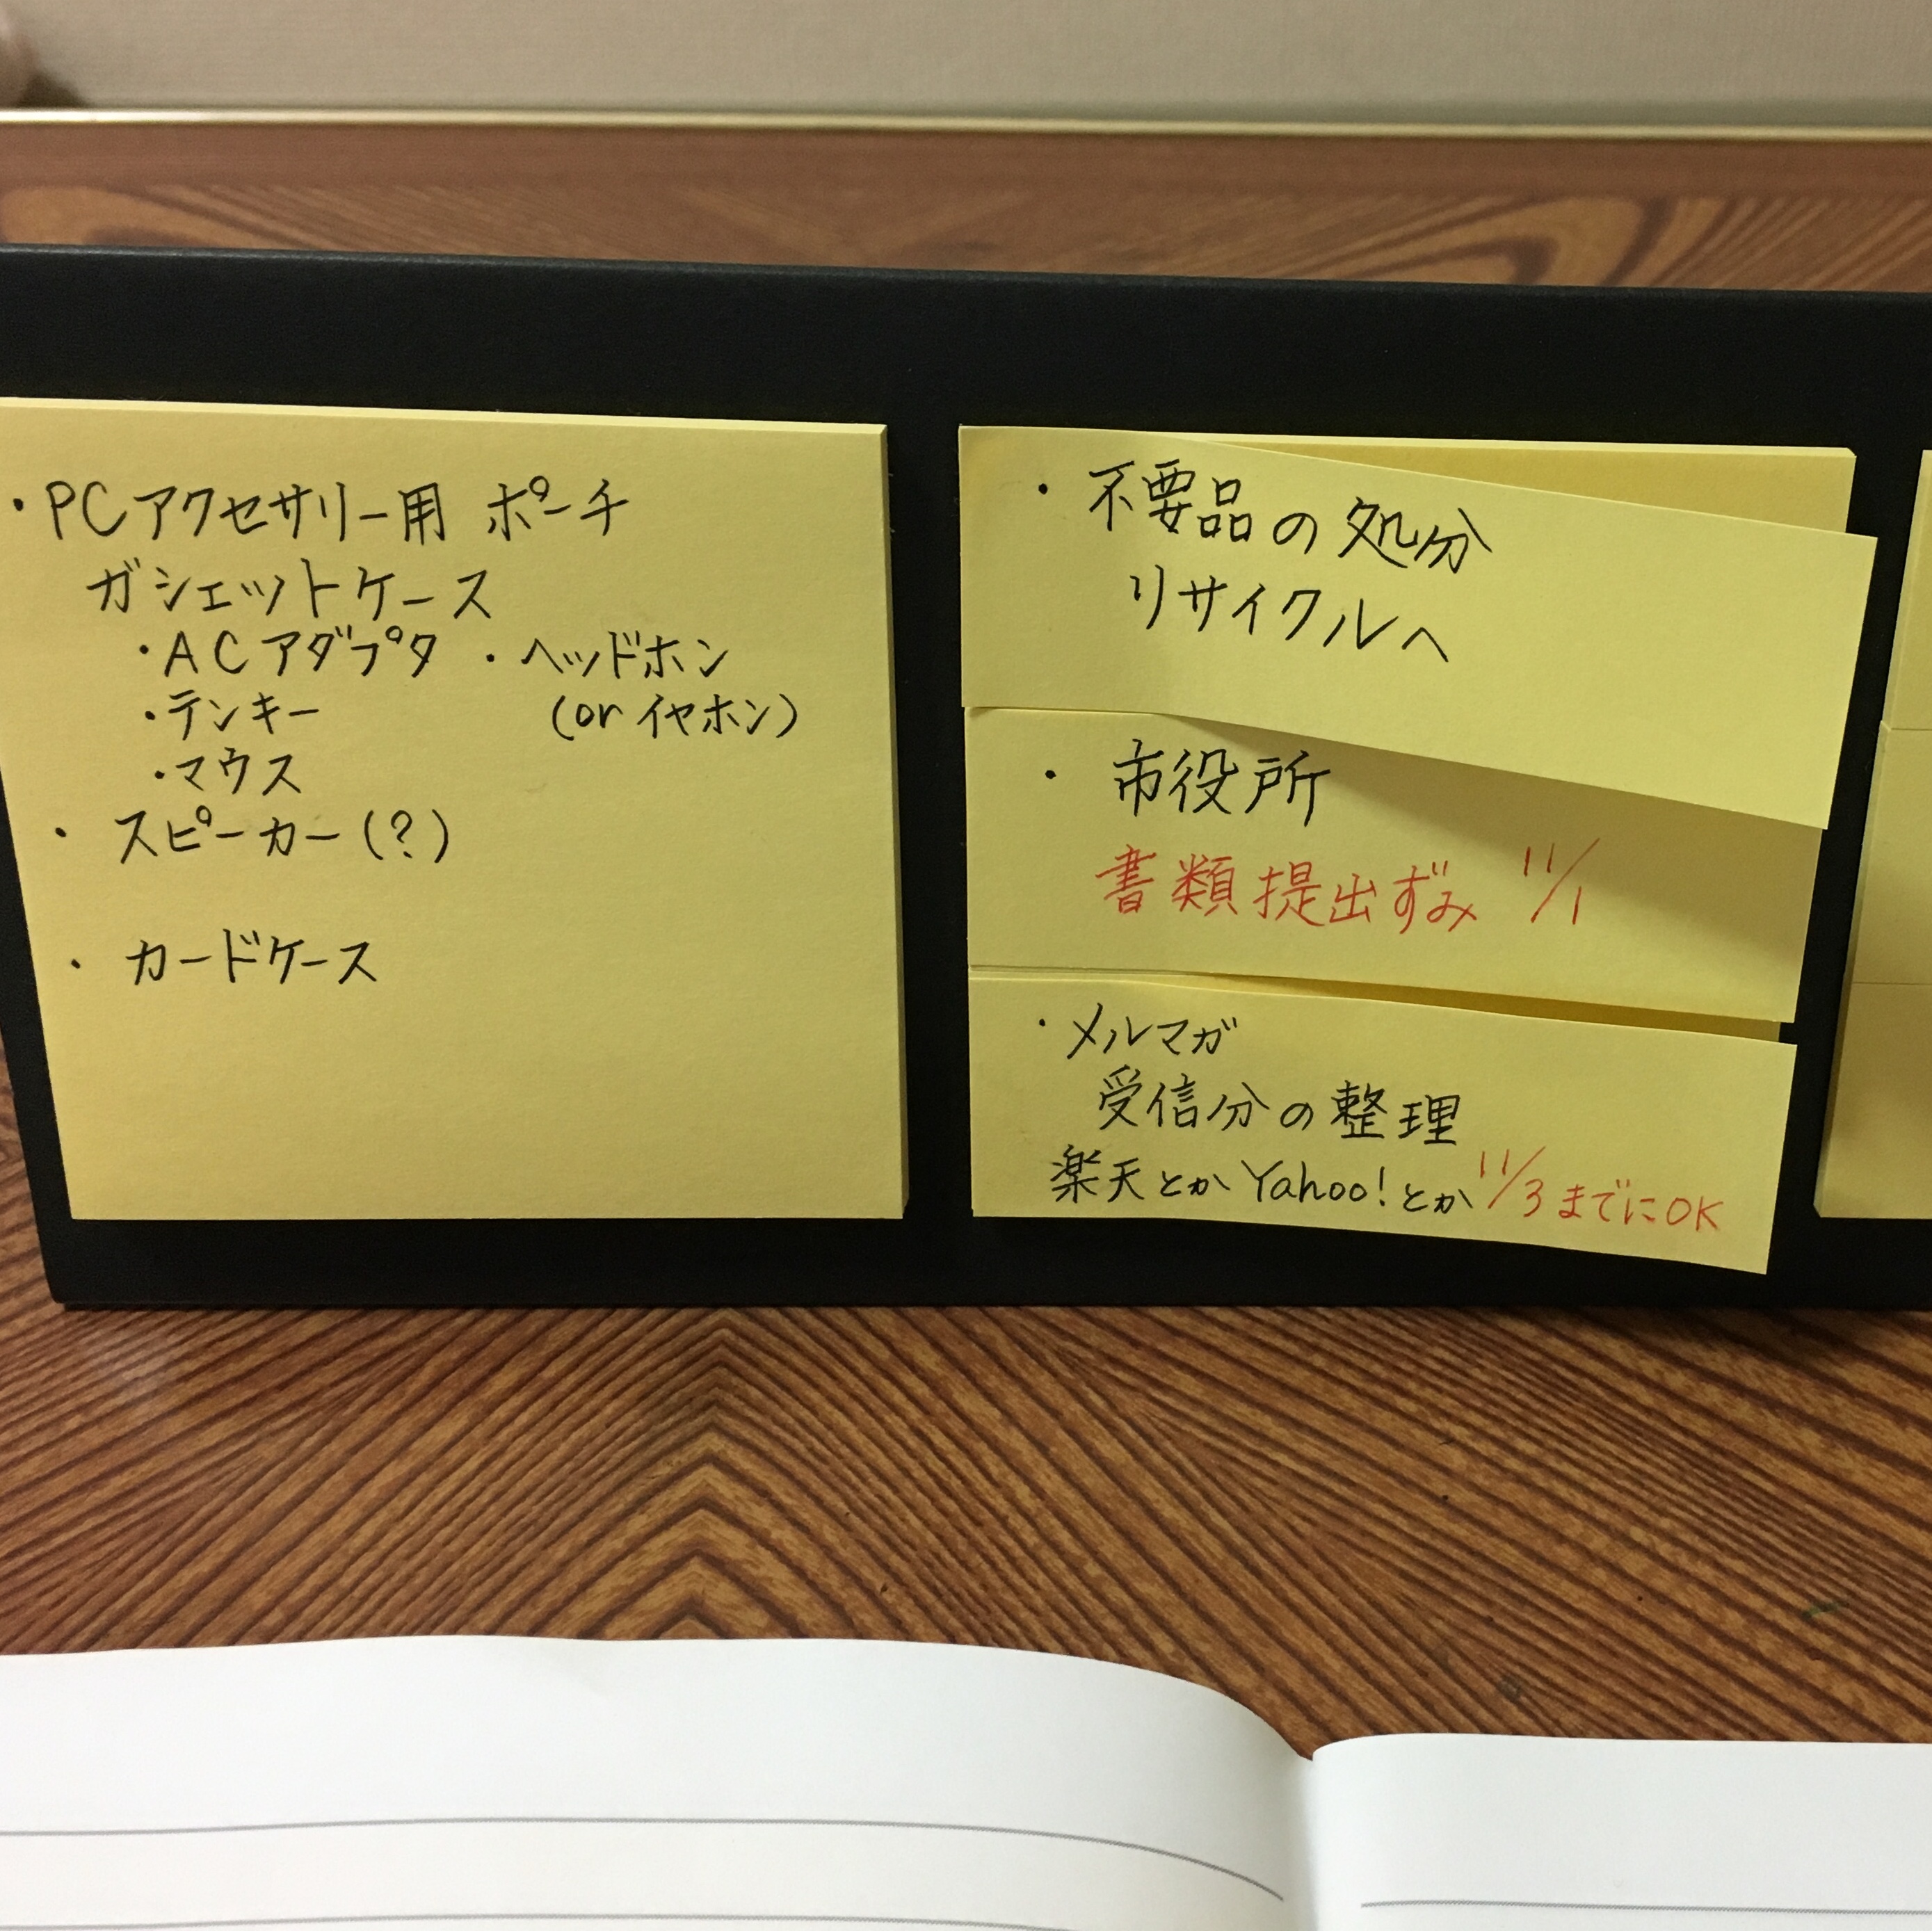 ・PCアクセサリー用 ポーチ
ガシェットケース
・ACアダプタ ・ヘッドホン
・テンキー (or イヤホン)
・マウス
・スピーカー(?)
・カードケース
・不要品の処分
リサイクルへ
・市役所
書類提出ずみ 11/1
・メルマガ
受信分の整理
楽天とかYahoo!とか 11/3までにOK